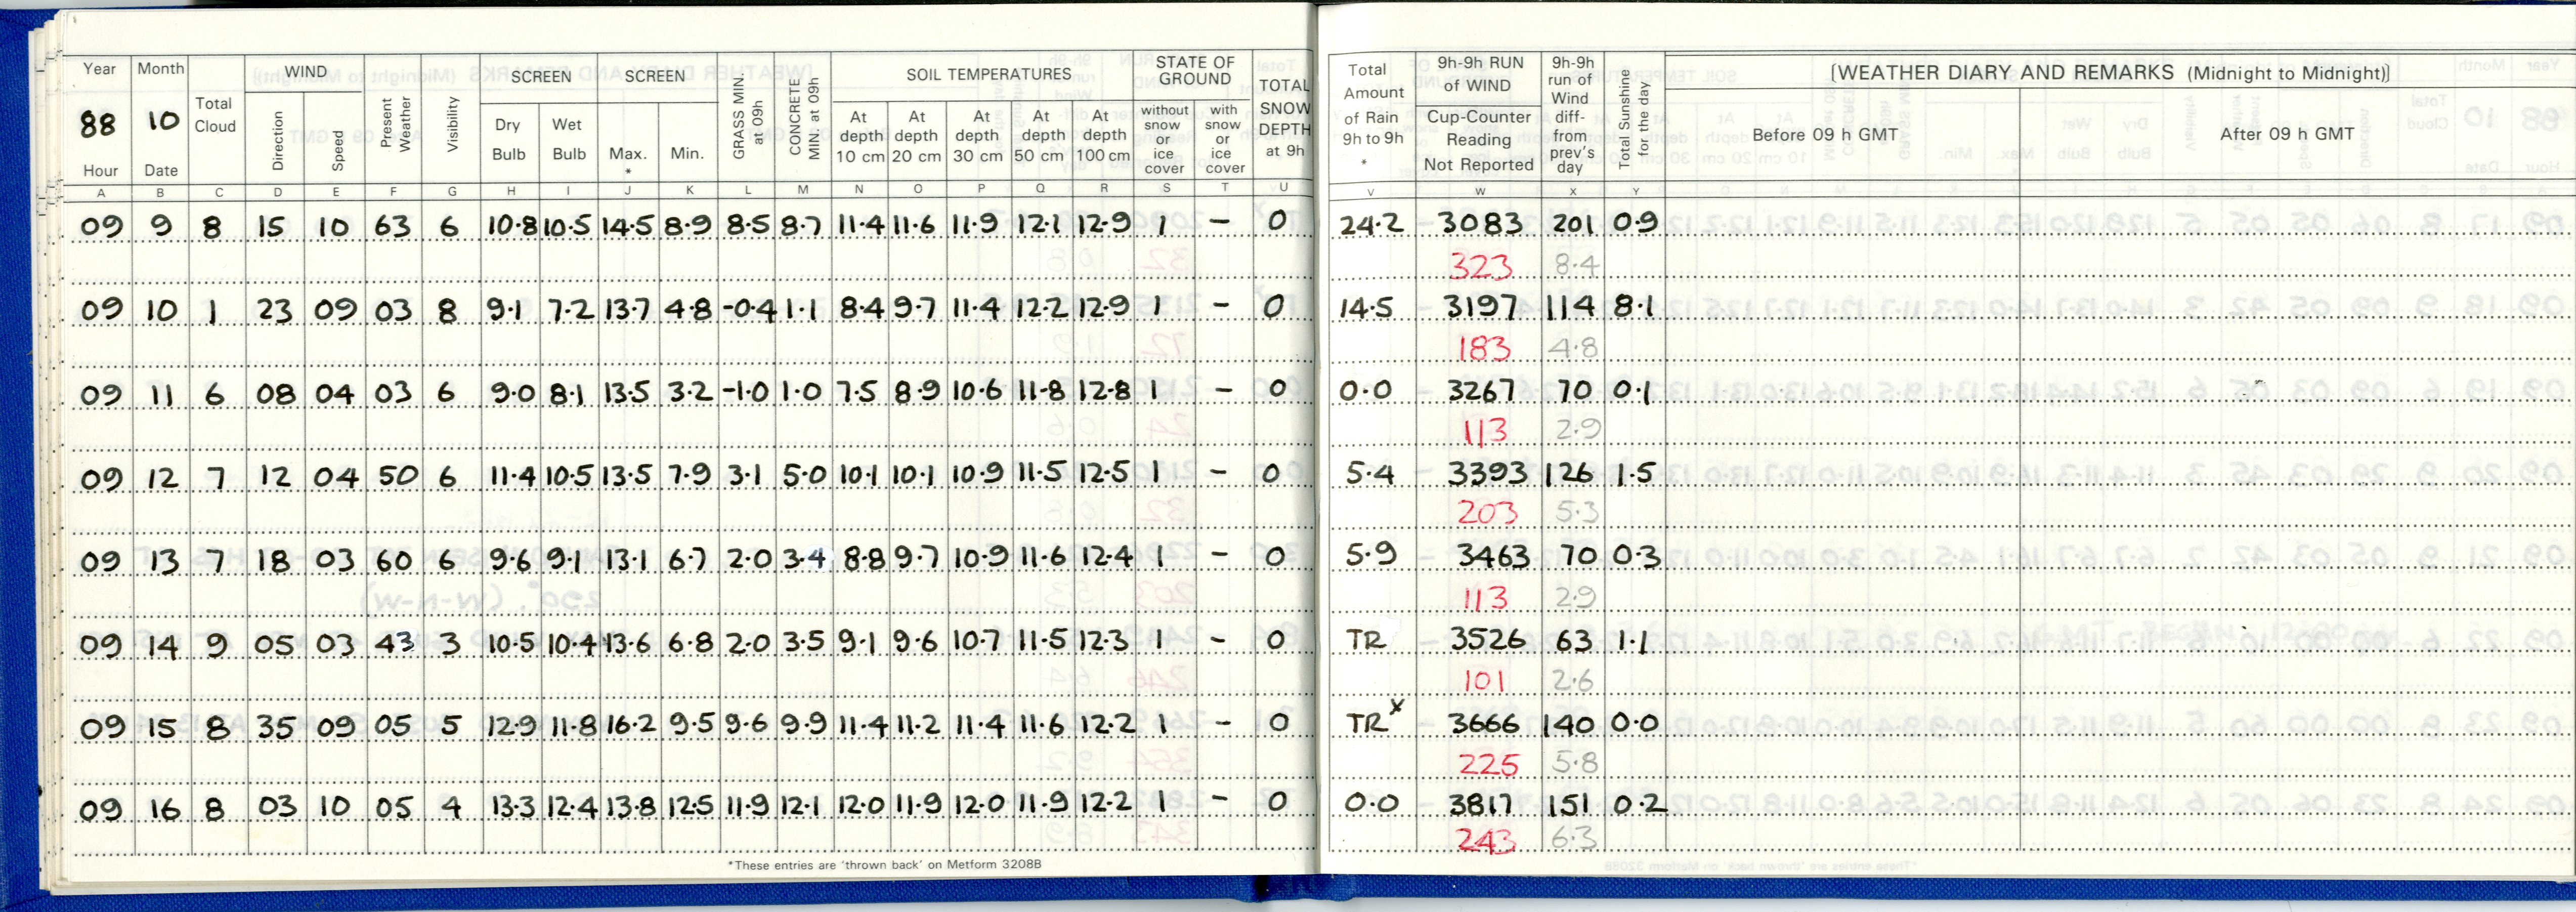 Year Month Total Cloud WIND Present Weather Visibility SCREEN SCREEN GRASS MIN. at 09h CONCRETE MIN at 09h SOIL TEMPERATURES STATE OF GROUND TOTAL SNOW DEPTH at 9h Total Amount of Rain 9h to 9h * 9h-9h RUN of WIND 9h-9h run of Wind diff- from prev's day Total Sunshine for the day [WEATHER DIARY AND REMARKS (Midnight to Midnight)]
88 10 Direction Speed Dry Bulb Wet Bulb Max. * Min. At depth 10 cm At depth 20 cm At depth 30 cm At depth 50 cm At depth 100 cm without snow or ice cover with snow or ice cover Cup-Counter Reading Not Reported Before 09 h GMT After 09 h GMT
Hour Date
A B C D E F G H I J K L M N O P Q R S T U V W X Y
09 9 8 15 10 63 6 10·8 10·5 14·5 8·9 8·5 8·7 11·4 11·6 11·9 12·1 12·9 1 – 0 24·2 3083 201 0·9
323 8·4
09 10 1 23 09 03 8 9·1 7·2 13·7 4·8 -0·4 1·1 8·4 9·7 11·4 12·2 12·9 1 – 0 14·5 3197 114 8·1
183 4·8
09 11 6 08 04 03 6 9·0 8·1 13·5 3·2 -1·0 1·0 7·5 8·9 10·6 11·8 12·8 1 – 0 0·0 3267 70 0·1
113 2·9
09 12 7 12 04 50 6 11·4 10·5 13·5 7·9 3·1 5·0 10·1 10·1 10·9 11·5 12·5 1 – 0 5·4 3393 126 1·5
203 5·3
09 13 7 18 03 60 6 9·6 9·1 13·1 6·7 2·0 3·4 8·8 9·7 10·9 11·6 12·4 1 – 0 5·9 3463 70 0·3
113 2·9
09 14 9 05 03 43 3 10·5 10·4 13·6 6·8 2·0 3·5 9·1 9·6 10·7 11·5 12·3 1 – 0 TR 3526 63 1·1
101 2·6
09 15 8 35 09 05 5 12·9 11·8 16·2 9·5 9·6 9·9 11·4 11·2 11·4 11·6 12·2 1 – 0 TR x 3666 140 0·0
225 5·8
09 16 8 03 10 05 4 13·3 12·4 13·8 12·5 11·9 12·1 12·0 11·9 12·0 11·9 12·2 1 – 0 0·0 3817 151 0·2
243 6·3
*These entries are 'thrown back' on Metform 3208B